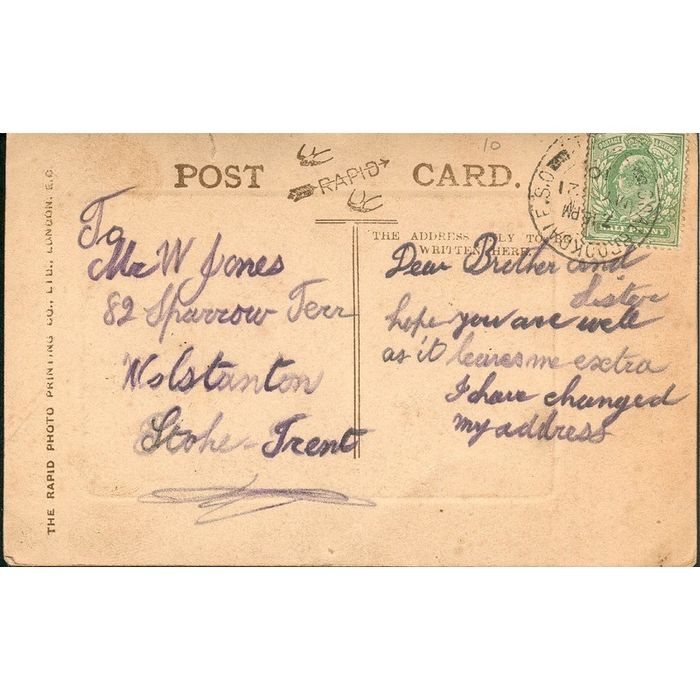 10
POST CARD.
RAPID
THE ADDRESS ONLY TO BE
WRITTEN HERE.
To
Mr W Jones
82 Sparrow Terr
Wolstanton
Stoke-Trent
Dear Brother and
Sister
hope you are well
as it leaves me extra
I have changed
my address
THE RAPID PHOTO PRINTING CO., LTD., LONDON, E.C.
POSTAGE
HALF PENNY